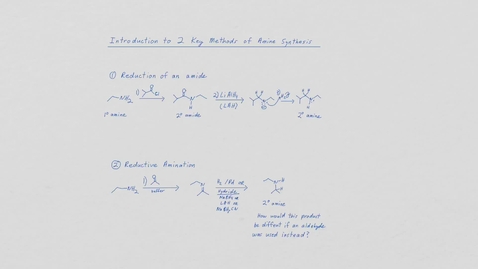 Introduction to 2 Key Methods of Amine Synthesis
① Reduction of an amide
NH2 1) Cl 2) LiAlH4
(LAH)
1° amine 2° amide 2° amine
② Reductive Amination
NH2 1) H2/Pd or
Hydride
NaBH4 or
LAH or
NaBH3CN
2° amine
How would this product
be different if an aldehyde
was used instead?